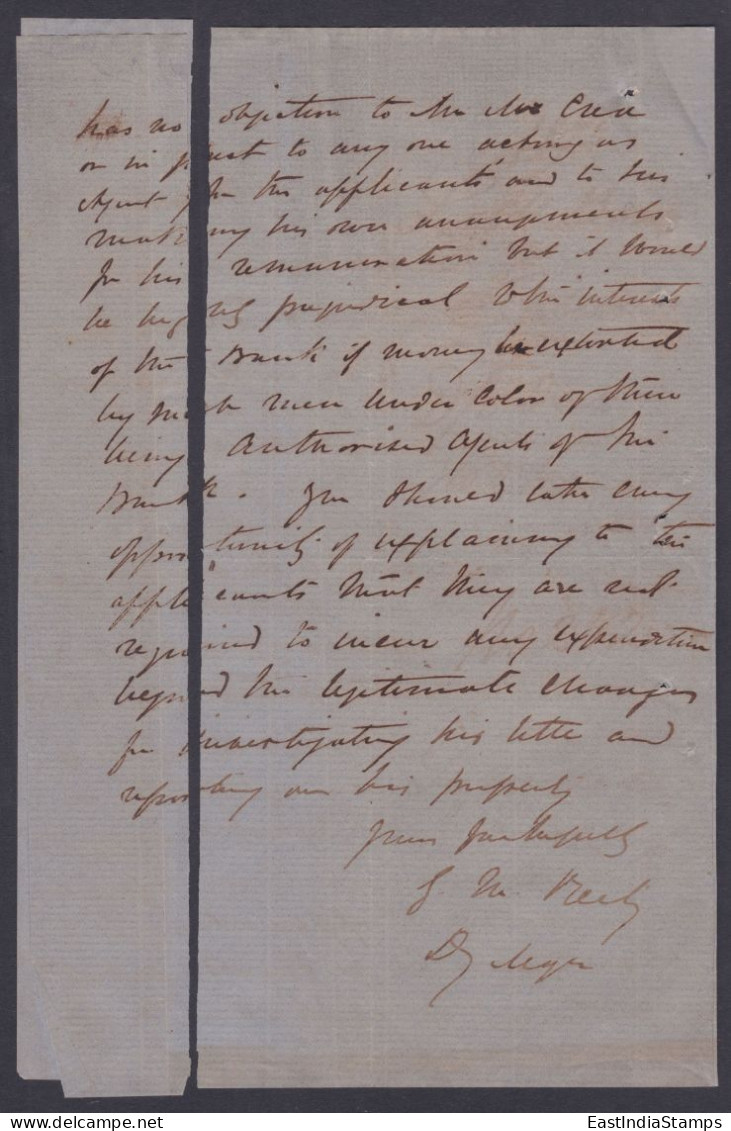 has no objection to Mr McCrea
or in fact to any one acting as
Agent for the applicants and to his
making his own arrangements
for his remuneration but it would
be highly prejudicial to the interests
of the Bank if money be extorted
by such men under color of their
being authorised agents of the
Bank. You should take every
opportunity of explaining to the
applicants that they are not
required to incur any expenditure
beyond the legitimate charges
for investigating his title and
reporting on his property
Yours faithfully
Dy Mgr
EastIndiaStamps